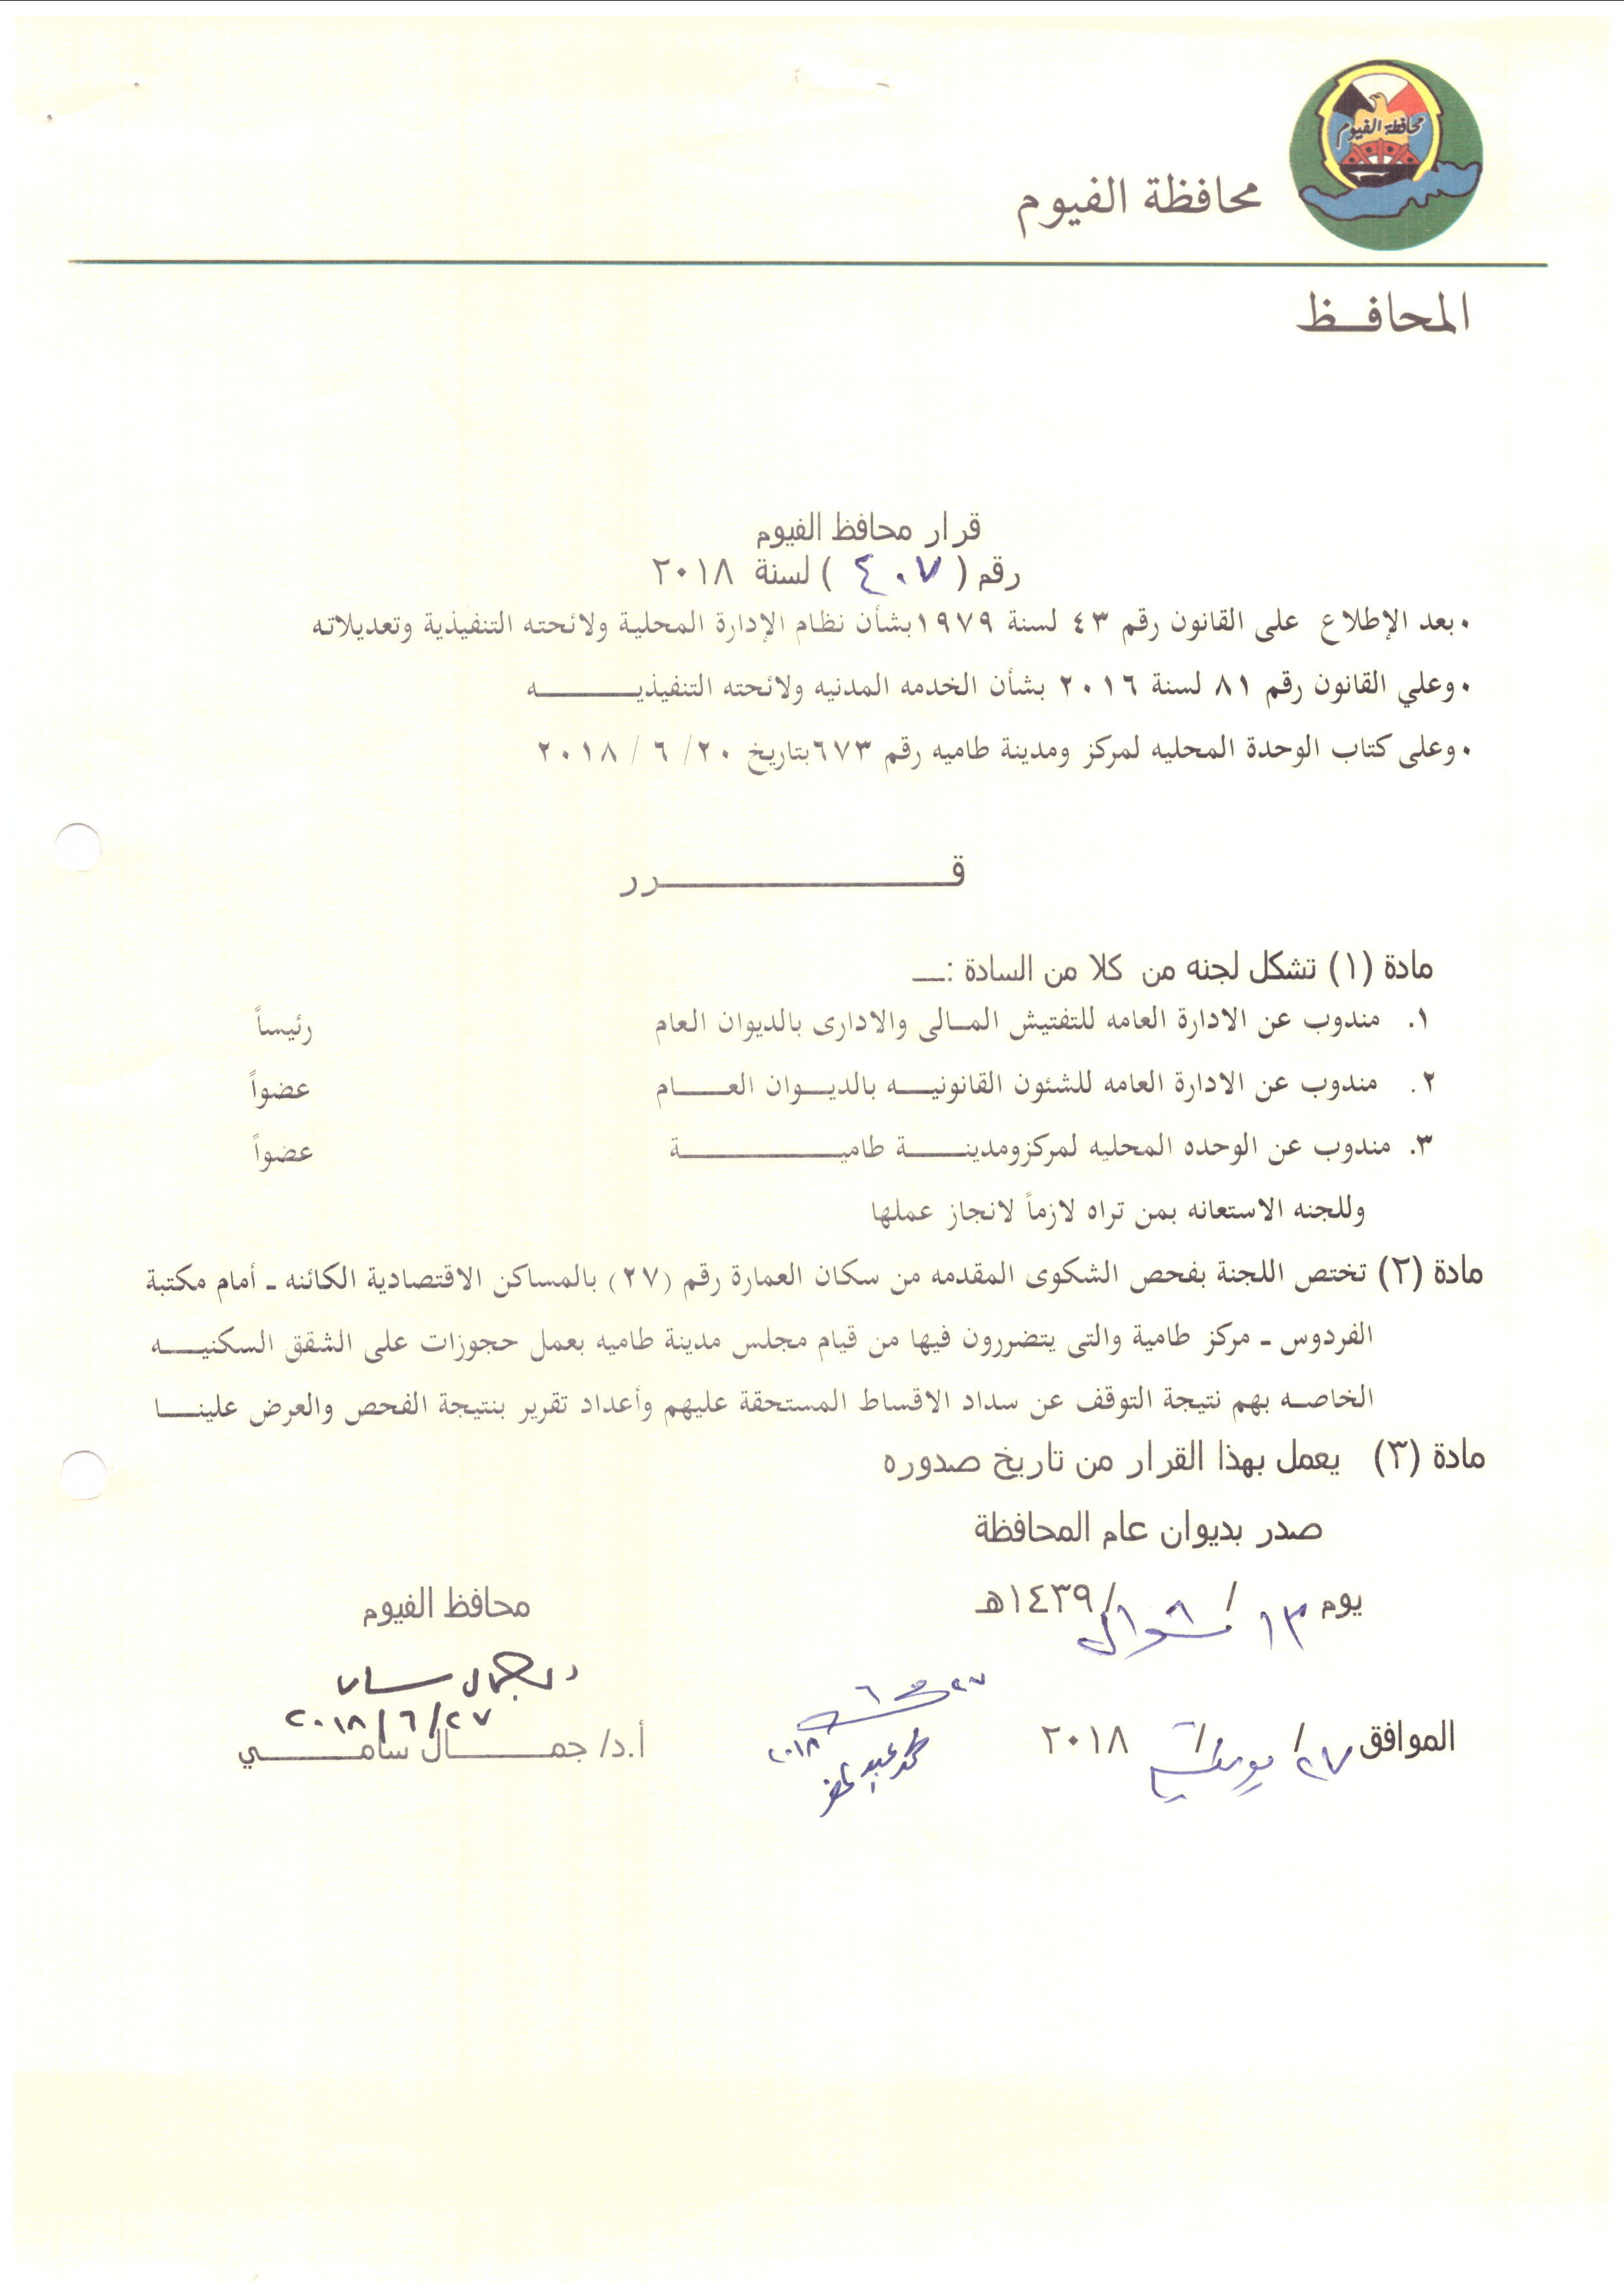 محافظة الفيوم
محافظة الفيوم
المحافــظ
قرار محافظ الفيوم
رقم ( ٤٠٧ ) لسنة ٢٠١٨
• بعد الإطلاع على القانون رقم ٤٣ لسنة ١٩٧٩بشأن نظام الإدارة المحلية ولائحته التنفيذية وتعديلاته
• وعلي القانون رقم ٨١ لسنة ٢٠١٦ بشأن الخدمه المدنيه ولائحته التنفيذيـــــــــه
• وعلى كتاب الوحدة المحليه لمركز ومدينة طاميه رقم ٦٧٣بتاريخ ٢٠/ ٦ / ٢٠١٨
قــــــــــــــــــــرر
مادة (١) تشكل لجنه من كلا من السادة :ــ
١. مندوب عن الادارة العامه للتفتيش المـالى والادارى بالديوان العام رئيساً
٢. مندوب عن الادارة العامه للشئون القانونيـــه بالديـــوان العــــام عضواً
٣. مندوب عن الوحده المحليه لمركزومدينـــــة طاميــــــــــــــة عضواً
وللجنه الاستعانه بمن تراه لازماً لانجاز عملها
مادة (٢) تختص اللجنة بفحص الشكوى المقدمه من سكان العمارة رقم (٢٧) بالمساكن الاقتصادية الكائنه ـ أمام مكتبة
الفردوس ـ مركز طامية والتى يتضررون فيها من قيام مجلس مدينة طاميه بعمل حجوزات على الشقق السكنيـــه
الخاصـه بهم نتيجة التوقف عن سداد الاقساط المستحقة عليهم وأعداد تقرير بنتيجة الفحص والعرض علينـــا
مادة (٣) يعمل بهذا القرار من تاريخ صدوره
صدر بديوان عام المحافظة
يوم ١٣ / شوال / ١٤٣٩هـ
محافظ الفيوم
٢٠١٨/٦/٢٧
الموافق ٢٧ / يونية / ٢٠١٨
أ.د/ جمــــــال سامــــــــي